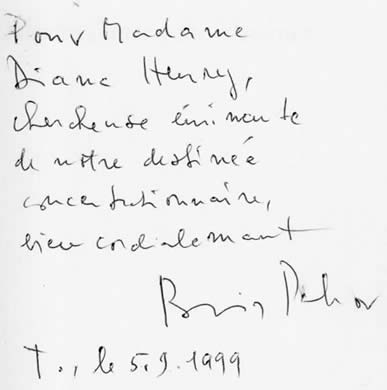 Pour Madame
Diana Henry,
chercheuse éminente
de notre destinée
concentrationnaire,
bien cordialement
Boris Pahor
T., le 5.9.1999